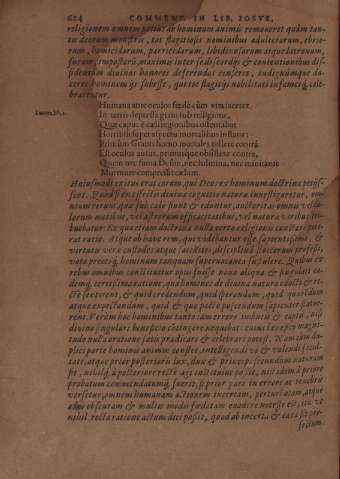 624 COMMENT. IN LIB. IOSVE,
religionem omnem potius ab hominum animis remoueret quàm tan-
tu decorum monstris, tot flagitiosis hominibus adulterarum, ebrio-
rum, homicidarum, parricidarum, libidinosarum atque latronum,
furum, impostorũ, maximis inter se discordijs & contentionibus dis-
sidentium diuinos honores deferendos censeret,
ceret hominem ijs subesse, qui tot flagitijs nobilitati infamesq́,
brarentur.
Lucret. lib. 1.
Humana ante oculos fœdè cùm vita iaceret
In terris oppressa graui sub relligione,
Quæ caput è cæli regionibus ostendebat
Horribili super aspectu mortalibus instans:
Primùm Graius homo mortales tollere contrà
Est oculos ausus, primusque obsistere contra,
Quem nec fama Deûm, nec fulmina, nec minitanti
Murmure compressit cælum.
Huiusmodi exitus erat eorum, qui Deorum hominum doctrina profis-
sent. Quòd si ens specijs diuina cognitio natura inuestigaretur, om-
nium rerum, quæ sub cælo sunt & eduntur, auctoritas omnis vel cæ-
lorum motibus, vel astrorum efficacitatibus, vel natura viribus tri-
buebatur: Ex qua etiam doctrina nulla certo religioni constare pote-
rat ratio. Atque ob hanc rem, qui videbantur esse sapientissimi, &
virtutis vera custodes atque satellites, disciplina Stoicorum professi,
vota precesq́, hominum tanquam superuacanea sustulere. Quibus ex
rebus omnibus constituitur opus fuisse noua aliqua & singulari ea-
demq́, certissima ratione, qua homines de diuina natura edocti & re-
ctè sentirent, & quid credendum, quid sperandum, quid quo modo
atque expectandum, quid & quo pacto vescendum sapienter statue-
rent. Verùm hoc hominibus tantis iam errore imbutis & captis, nisi
diuino singulari beneficio contingere nequibat: cuius beneficij magni-
tudo nulla oratione satis prædicari & celebrari potest. Nam cùm du-
plici parte hominis animus constet, intelligendi vi & volendi facul-
tate, atque prior posteriori lux, dux & princeps secundùm naturam
sit, nihilq́, à posteriore rectè agi institui possit, nisi id ipsum à priore
probatum commendatumq́, fuerit, si prior pars in errore ac tenebris
versetur, omnem humanam actionem incertam, perturbatam, atque
adeo obscuram & multis modis fœdatam euadere necesse est, ita vt
nihil recta ratione actum dici possit, quod ab incerta & cæca sit pro-
fectum.